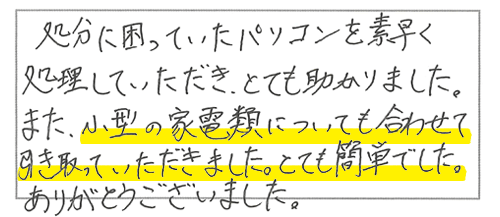 処分に困っていたパソコンを素早く
処理していただき、とても助かりました。
また、小型の家電類についても合わせて
引き取っていただきました。とても簡単でした。
ありがとうございました。